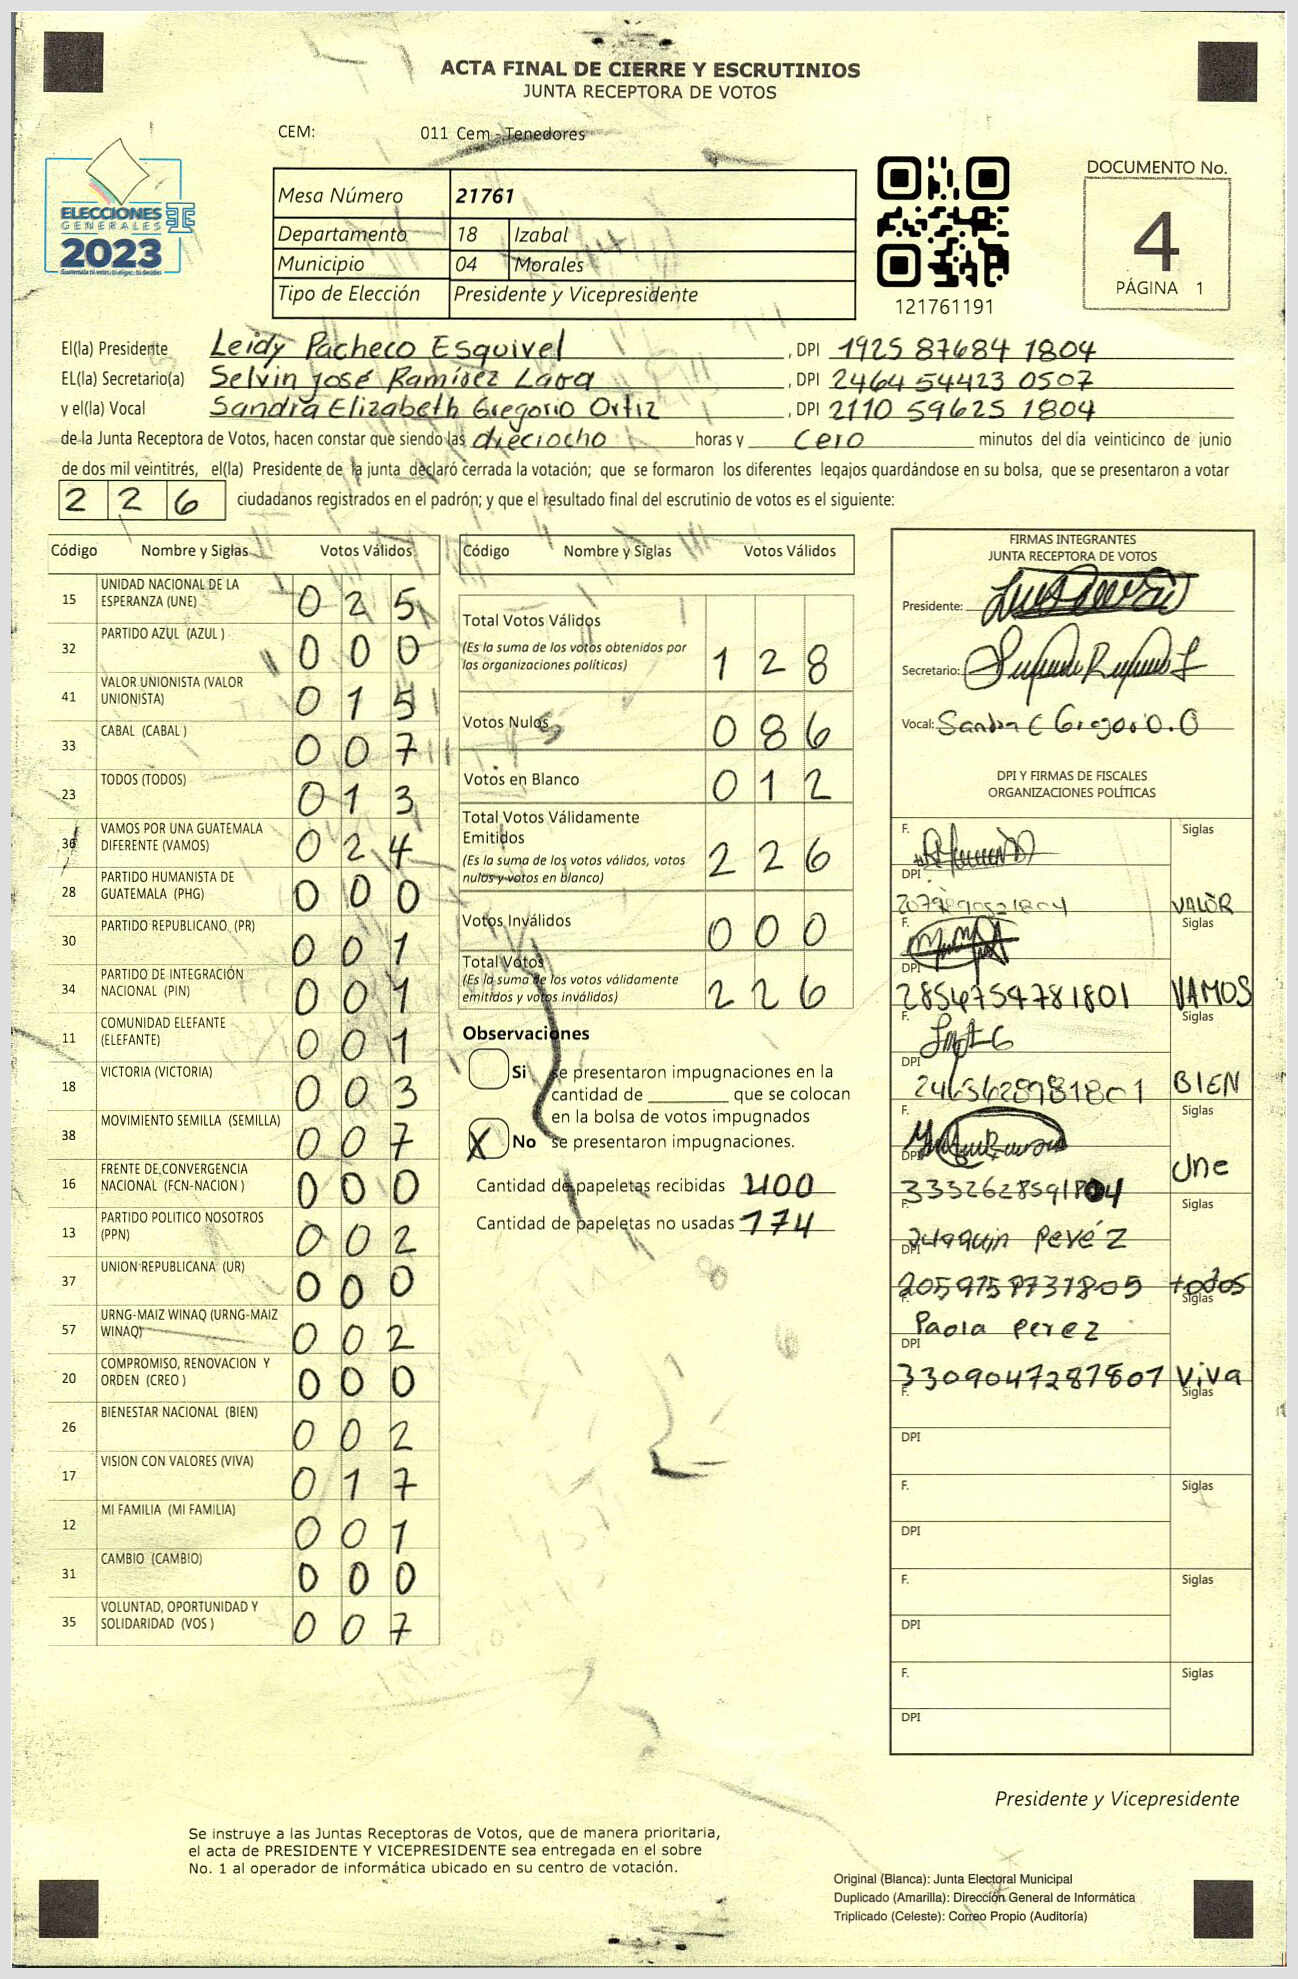 ACTA FINAL DE CIERRE Y ESCRUTINIOS
JUNTA RECEPTORA DE VOTOS
CEM: 011 Cem - Tenedores
ELECCIONES
GENERALES
2023
Mesa Número 21761
Departamento 18 Izabal
Municipio 04 Morales
Tipo de Elección Presidente y Vicepresidente
121761191
DOCUMENTO No.
4
PÁGINA 1
El(la) Presidente Leidy Pacheco Esquivel, DPI 1925 87684 1804
EL(la) Secretario(a) Selvin José Ramírez Lara, DPI 2464 54423 0507
y el(la) Vocal Sandra Elizabeth Gregorio Ortiz, DPI 2110 59625 1804
de la Junta Receptora de Votos, hacen constar que siendo las dieciocho horas y cero minutos del día veinticinco de junio
de dos mil veintitrés, el(la) Presidente de la junta declaró cerrada la votación; que se formaron los diferentes legajos guardándose en su bolsa, que se presentaron a votar
2 2 6 ciudadanos registrados en el padrón; y que el resultado final del escrutinio de votos es el siguiente:
Código Nombre y Siglas Votos Válidos
15 UNIDAD NACIONAL DE LA ESPERANZA (UNE) 0 2 5
32 PARTIDO AZUL (AZUL ) 0 0 0
41 VALOR UNIONISTA (VALOR UNIONISTA) 0 1 5
33 CABAL (CABAL ) 0 0 7
23 TODOS (TODOS) 0 1 3
36 VAMOS POR UNA GUATEMALA DIFERENTE (VAMOS) 0 2 4
28 PARTIDO HUMANISTA DE GUATEMALA (PHG) 0 0 0
30 PARTIDO REPUBLICANO (PR) 0 0 1
34 PARTIDO DE INTEGRACIÓN NACIONAL (PIN) 0 0 1
11 COMUNIDAD ELEFANTE (ELEFANTE) 0 0 1
18 VICTORIA (VICTORIA) 0 0 3
38 MOVIMIENTO SEMILLA (SEMILLA) 0 0 7
16 FRENTE DE CONVERGENCIA NACIONAL (FCN-NACION ) 0 0 0
13 PARTIDO POLITICO NOSOTROS (PPN) 0 0 2
37 UNION REPUBLICANA (UR) 0 0 0
57 URNG-MAIZ WINAQ (URNG-MAIZ WINAQ) 0 0 2
20 COMPROMISO, RENOVACION Y ORDEN (CREO ) 0 0 0
26 BIENESTAR NACIONAL (BIEN) 0 0 2
17 VISION CON VALORES (VIVA) 0 1 7
12 MI FAMILIA (MI FAMILIA) 0 0 1
31 CAMBIO (CAMBIO) 0 0 0
35 VOLUNTAD, OPORTUNIDAD Y SOLIDARIDAD (VOS ) 0 0 7
Código Nombre y Siglas Votos Válidos
Total Votos Válidos
(Es la suma de los votos obtenidos por
las organizaciones políticas) 1 2 8
Votos Nulos 0 8 6
Votos en Blanco 0 1 2
Total Votos Válidamente
Emitidos
(Es la suma de los votos válidos, votos
nulos y votos en blanco) 2 2 6
Votos Inválidos 0 0 0
Total Votos
(Es la suma de los votos válidamente
emitidos y votos inválidos) 2 2 6
Observaciones
Si se presentaron impugnaciones en la
cantidad de ________ que se colocan
en la bolsa de votos impugnados
X No se presentaron impugnaciones.
Cantidad de papeletas recibidas 400
Cantidad de papeletas no usadas 174
FIRMAS INTEGRANTES
JUNTA RECEPTORA DE VOTOS
Presidente:
Secretario:
Vocal: Sandra E Gregorio.O
DPI Y FIRMAS DE FISCALES
ORGANIZACIONES POLÍTICAS
F. Siglas
DPI VALOR
F. Siglas
DPI 2854754781801 VAMOS
F. Siglas
DPI 2463628981801 BIEN
F. Siglas
DPI 3332628591804 Une
F. Siglas
DPI todos
F. Paola Perez Siglas
DPI 3309047287807 Viva
F. Siglas
DPI
F. Siglas
DPI
F. Siglas
DPI
F. Siglas
DPI
Presidente y Vicepresidente
Se instruye a las Juntas Receptoras de Votos, que de manera prioritaria,
el acta de PRESIDENTE Y VICEPRESIDENTE sea entregada en el sobre
No. 1 al operador de informática ubicado en su centro de votación.
Original (Blanca): Junta Electoral Municipal
Duplicado (Amarilla): Dirección General de Informática
Triplicado (Celeste): Correo Propio (Auditoría)